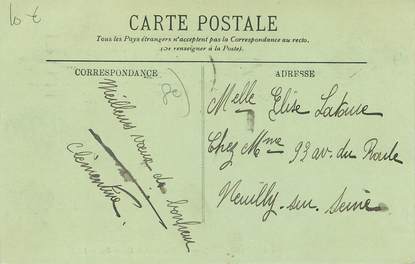 10 €
CARTE POSTALE
Tous les Pays étrangers n'acceptent pas la Correspondance au recto.
(se renseigner à la Poste).
CORRESPONDANCE
ADRESSE
Meilleurs vœux de bonheur
Clémentine
Melle Elise Latour
Chez Mme 93 av. du Roule
Neuilly-sur-Seine